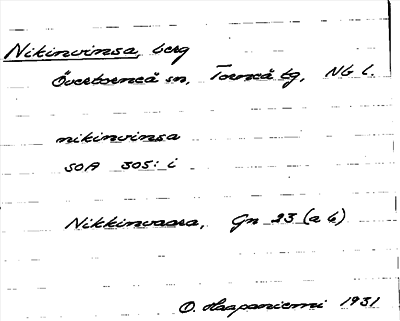 Nikinvinsa, berg
Övertorneå sn, Torneå tg, NB l.
nikinvinsa
SOA 305: i
Nikkinvaara, Gn 23 (a b)
O. Haapaniemi 1931